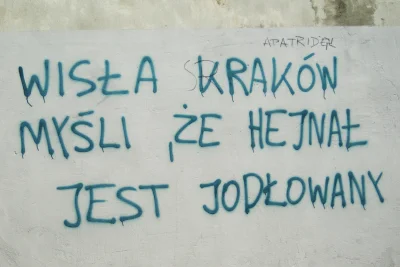 APATRIDEK
WISŁA SKRAKÓW
MYŚLI, ŻE HEJNAŁ
JEST JODŁOWANY